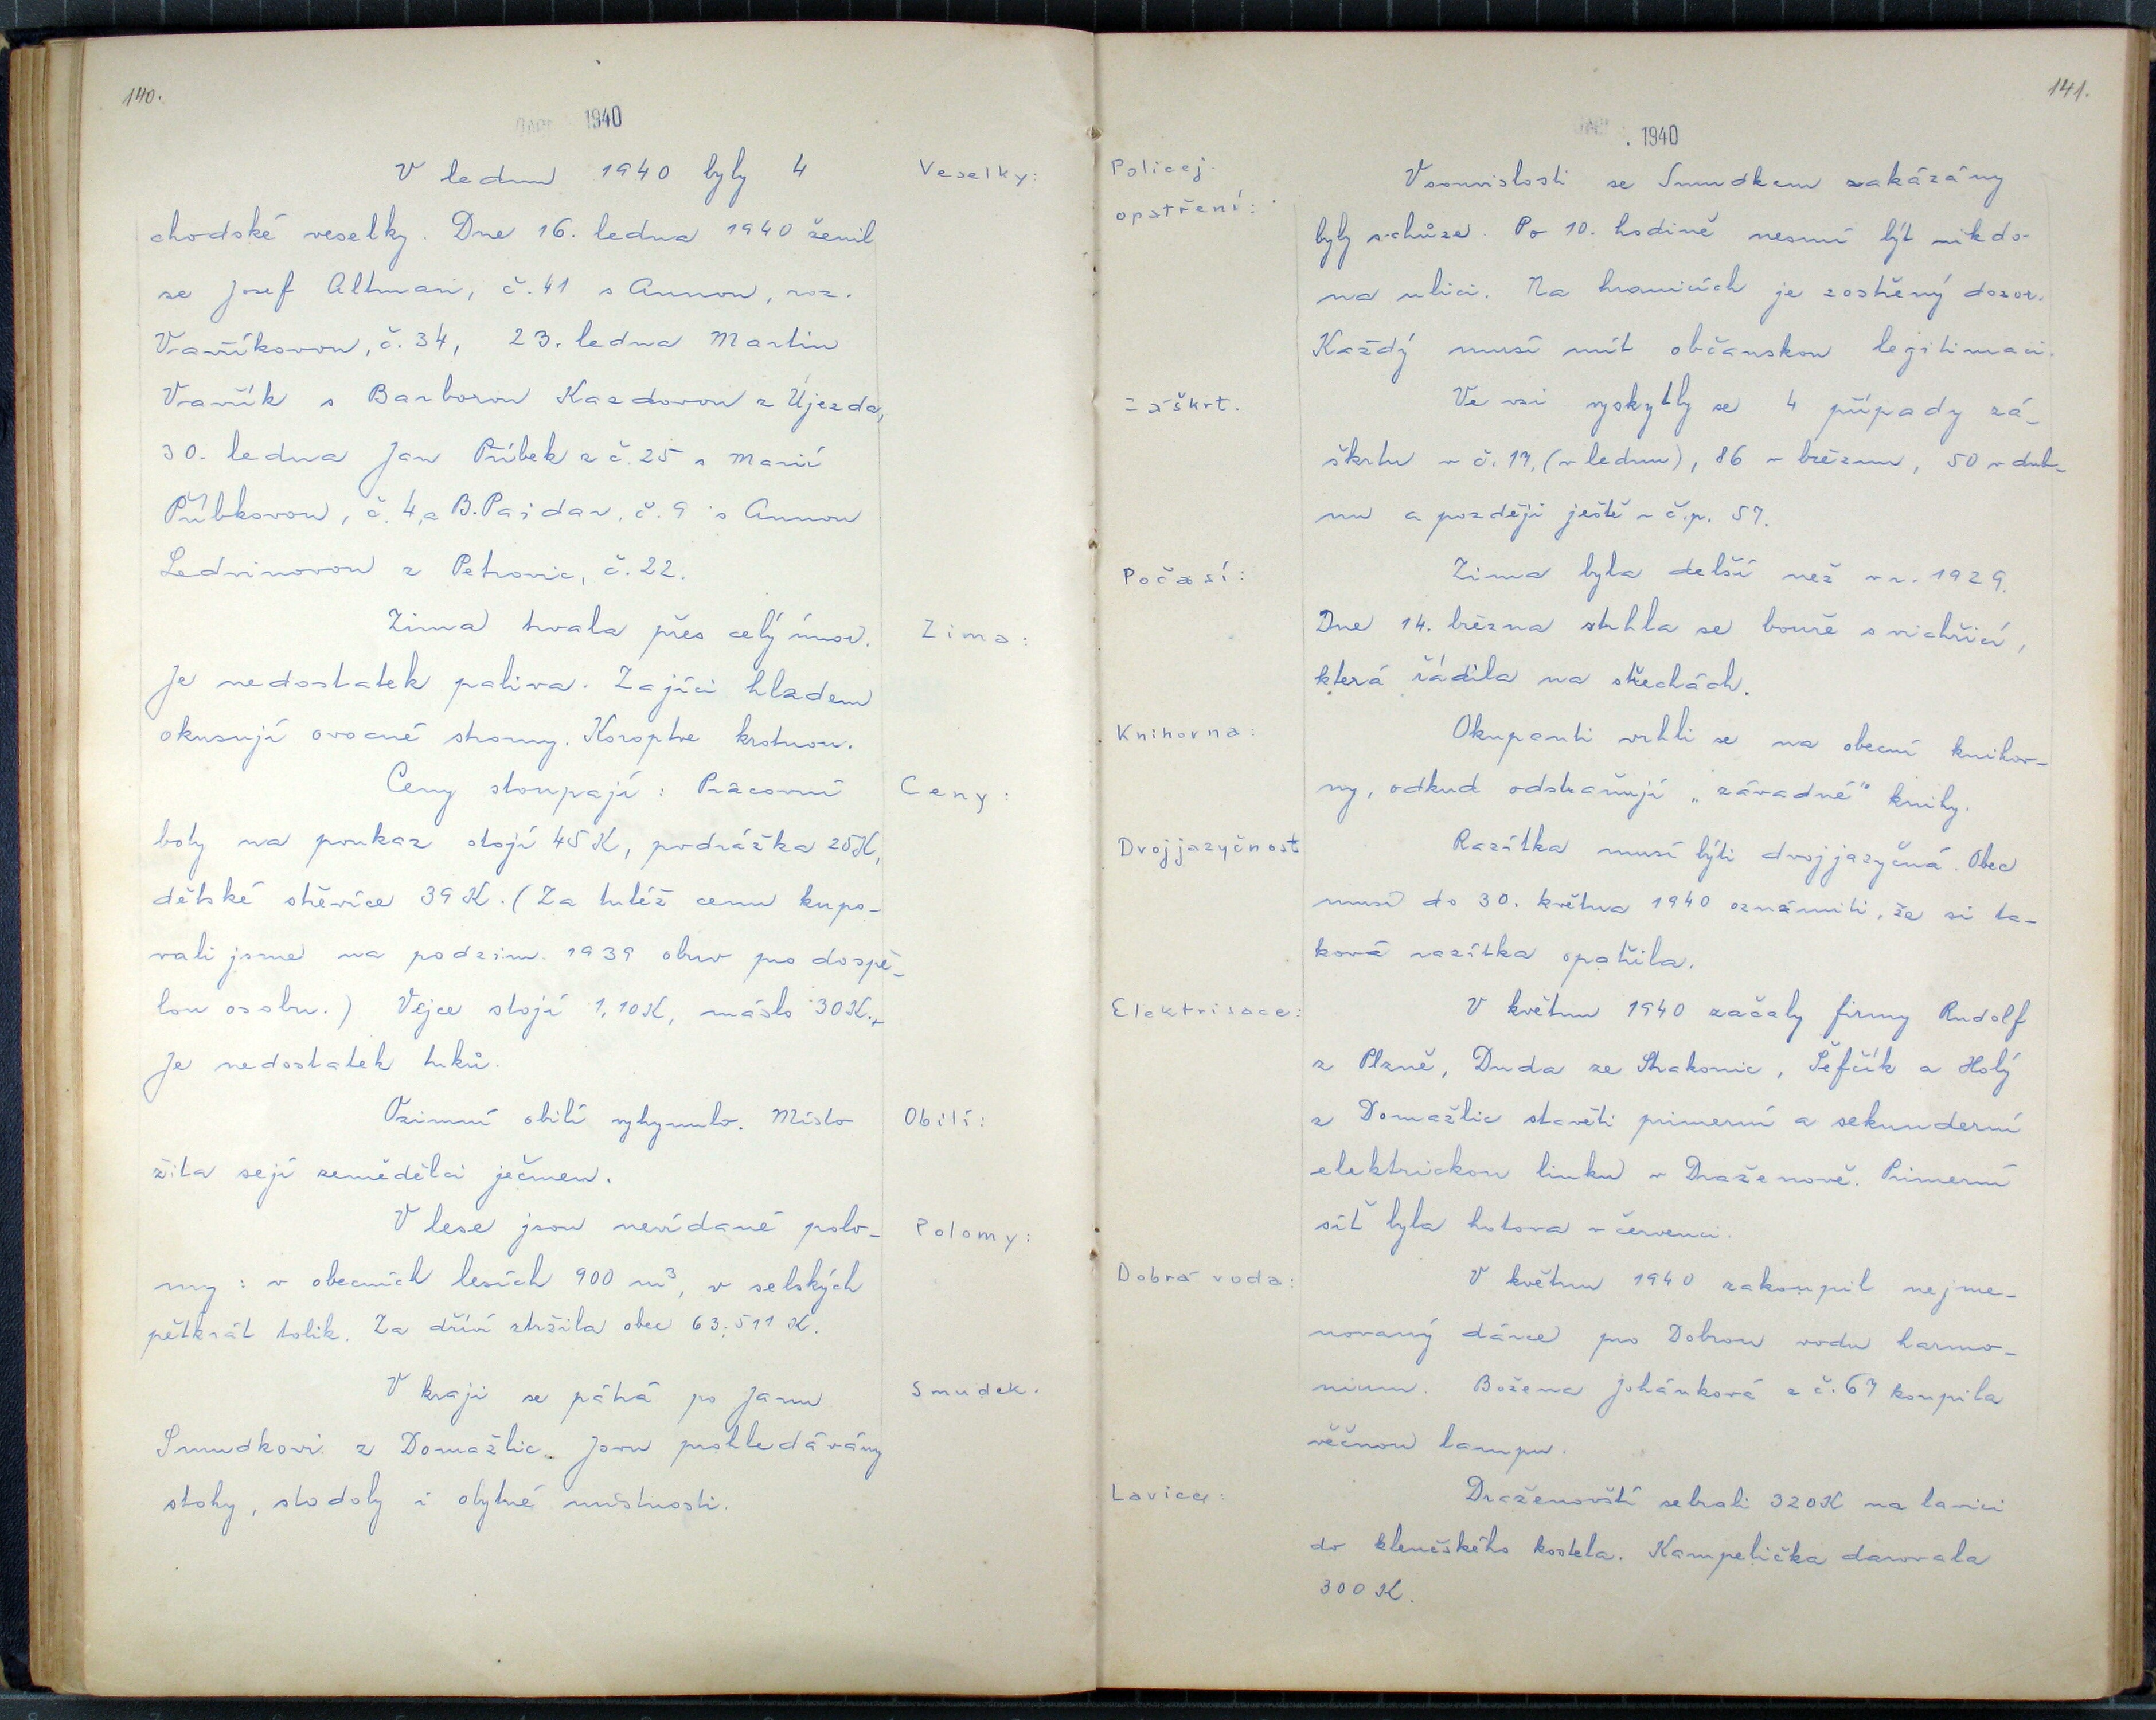 140.
1940
V lednu 1940 byly 4
Veselky:
chodské veselky. Dne 16. ledna 1940 ženil
se Josef Altman, č. 41 s Annou, roz.
Vaříkovou, č. 34, 23. ledna Martin
Vařík s Barborou Kazdovou z Újezda,
30. ledna Jan Příbek z č. 25 s Marií
Příbkovou, č. 4, a B. Pajdar, č. 9 s Annou
Ledvinovou z Petrovic, č. 22.
Zima trvala přes celý únor.
Zima:
Je nedostatek paliva. Zajíci hladem
okusují ovocné stromy. Koroptve krotnou.
Ceny stoupají: Pracovní
Ceny:
boty na poukaz stojí 45 K, podrážka 25 K,
dětské střevíce 39 K. (Za tutéž cenu kupo-
vali jsme na podzim 1939 obuv pro dospě-
lou osobu.) Vejce stojí 1,10 K, máslo 30 K.
Je nedostatek tuků.
Ozimní obilí vyhynulo. Místo
Obilí:
žita sejí zemědělci ječmen.
V lese jsou nevídané polo-
Polomy:
my: v obecních lesích 900 m³, v selských
pětkrát tolik. Za dříví stržila obec 63.511 K.
V kraji se pátrá po Janu
Smudek.
Smudkovi z Domažlic. Jsou prohledávány
stohy, stodoly i obytné místnosti.
141.
1940
Policej.
opatření:
V souvislosti se Smudkem zakázány
byly schůze. Po 10. hodině nesmí být nikdo
na ulici. Na hranicích je zostřený dozor.
Každý musí mít občanskou legitimaci.
Záškrt.
Ve vsi vyskytly se 4 případy zá-
škrtu v č. 17, (v lednu), 86 v březnu, 50 v dub-
nu a později ještě v č.p. 57.
Počasí:
Zima byla delší než v r. 1929.
Dne 14. března strhla se bouře s vichřicí,
která řádila na střechách.
Knihovna:
Okupanti vrhli se na obecní knihov-
ny, odkud odstraňují „závadné" knihy.
Dvojjazyčnost
Razítka musí býti dvojjazyčná. Obec
musí do 30. května 1940 oznámiti, že si ta-
ková razítka opatřila.
Elektrisace:
V květnu 1940 začaly firmy Rudolf
z Plzně, Duda ze Strakonic, Šefčík a Holý
z Domažlic stavěti primerní a sekunderní
elektrickou linku v Draženově. Primerní
síť byla hotova v červenci.
Dobrá voda:
V květnu 1940 zakoupil nejme-
novaný dárce pro Dobrou vodu harmo-
nium. Božena Johánková z č. 67 koupila
věčnou lampu.
Lavice:
Draženovští sebrali 320 K na lavici
do klenečského kostela. Kampelička darovala
300 K.